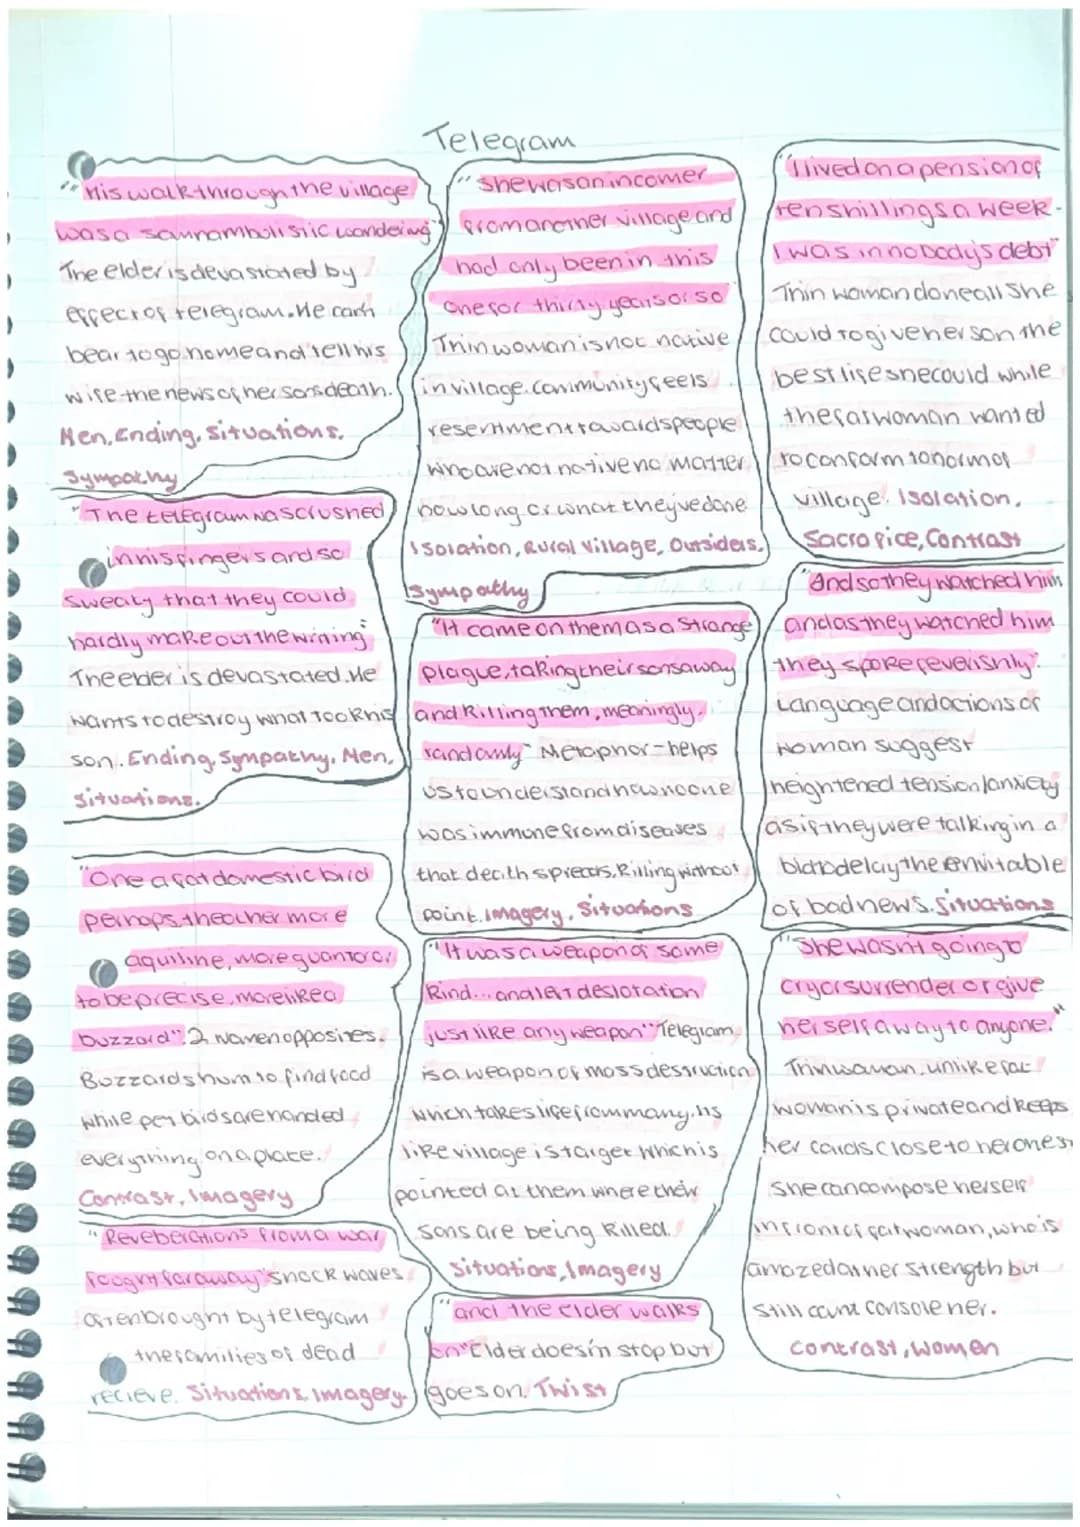 Telegram
"His walk through the village
was a somnambolistic wondering"
The elder is devastated by
effect of telegram. He can't
bear to go home and tell his
wife the news of her sons death.
Men, Ending, Situations,
Sympathy
"The telegram was crushed
in his fingers and so
sweaty that they could
hardly make out the writing"
The elder is devastated. He
wants to destroy what took his
son. Ending, Sympathy, Men,
Situations.
"One a fat domestic bird
perhaps, the other more
aquiline, more guant or,
to be precise, more like a
buzzard". 2 women opposites.
Buzzards hunt to find food
while pet birds are handed
everything on a plate.
Contrast, Imagery
"Reveberations from a war
fought faraway" shock waves
often brought by telegram
the families of dead
recieve. Situations, Imagery.
"She was an incomer
from another village and
had only been in this
one for thirty years or so
Thin woman is not native
in village. community feels
resentment towards people
who are not native no matter
how long or what they've done
Isolation, Rural Village, Outsiders,
Sympathy
"It came on them as a strange
plague, taking their sons away
and killing them, meaningly,
randomly" Metaphor - helps
us to understand how no one
was immune from diseases
that death spreads, killing without
point. Imagery, Situations
"It was a weapon of some
kind... and left deslotation
just like any weapon" Telegram
is a weapon of mass destruction
which takes life from many. Its
like village is target which is
pointed at them where their
sons are being killed.
Situations, Imagery
"and the elder walks
on" Elder doesn't stop but
goes on. Twist
"I lived on a pension of
ten shillings a week.
I was in nobody's debt"
Thin woman done all she
could to give her son the
best life she could while
the fat woman wanted
to conform to norm of
village. Isolation,
Sacrofice, Contrast
"And so they watched him
and as they watched him
they spoke feverishly".
Language and actions of
woman suggest
heightened tension/anxiety
as if they were talking in a
bid to delay the envitable
of bad news. Situations
"She wasn't going to
cry or surrender or give
herself away to anyone."
Thin woman, unlike fat
woman is private and keeps
her cards close to her chest
She can compose herself
in front of fat woman, who is
amazed at her strength but
still can't console her.
Contrast, Women